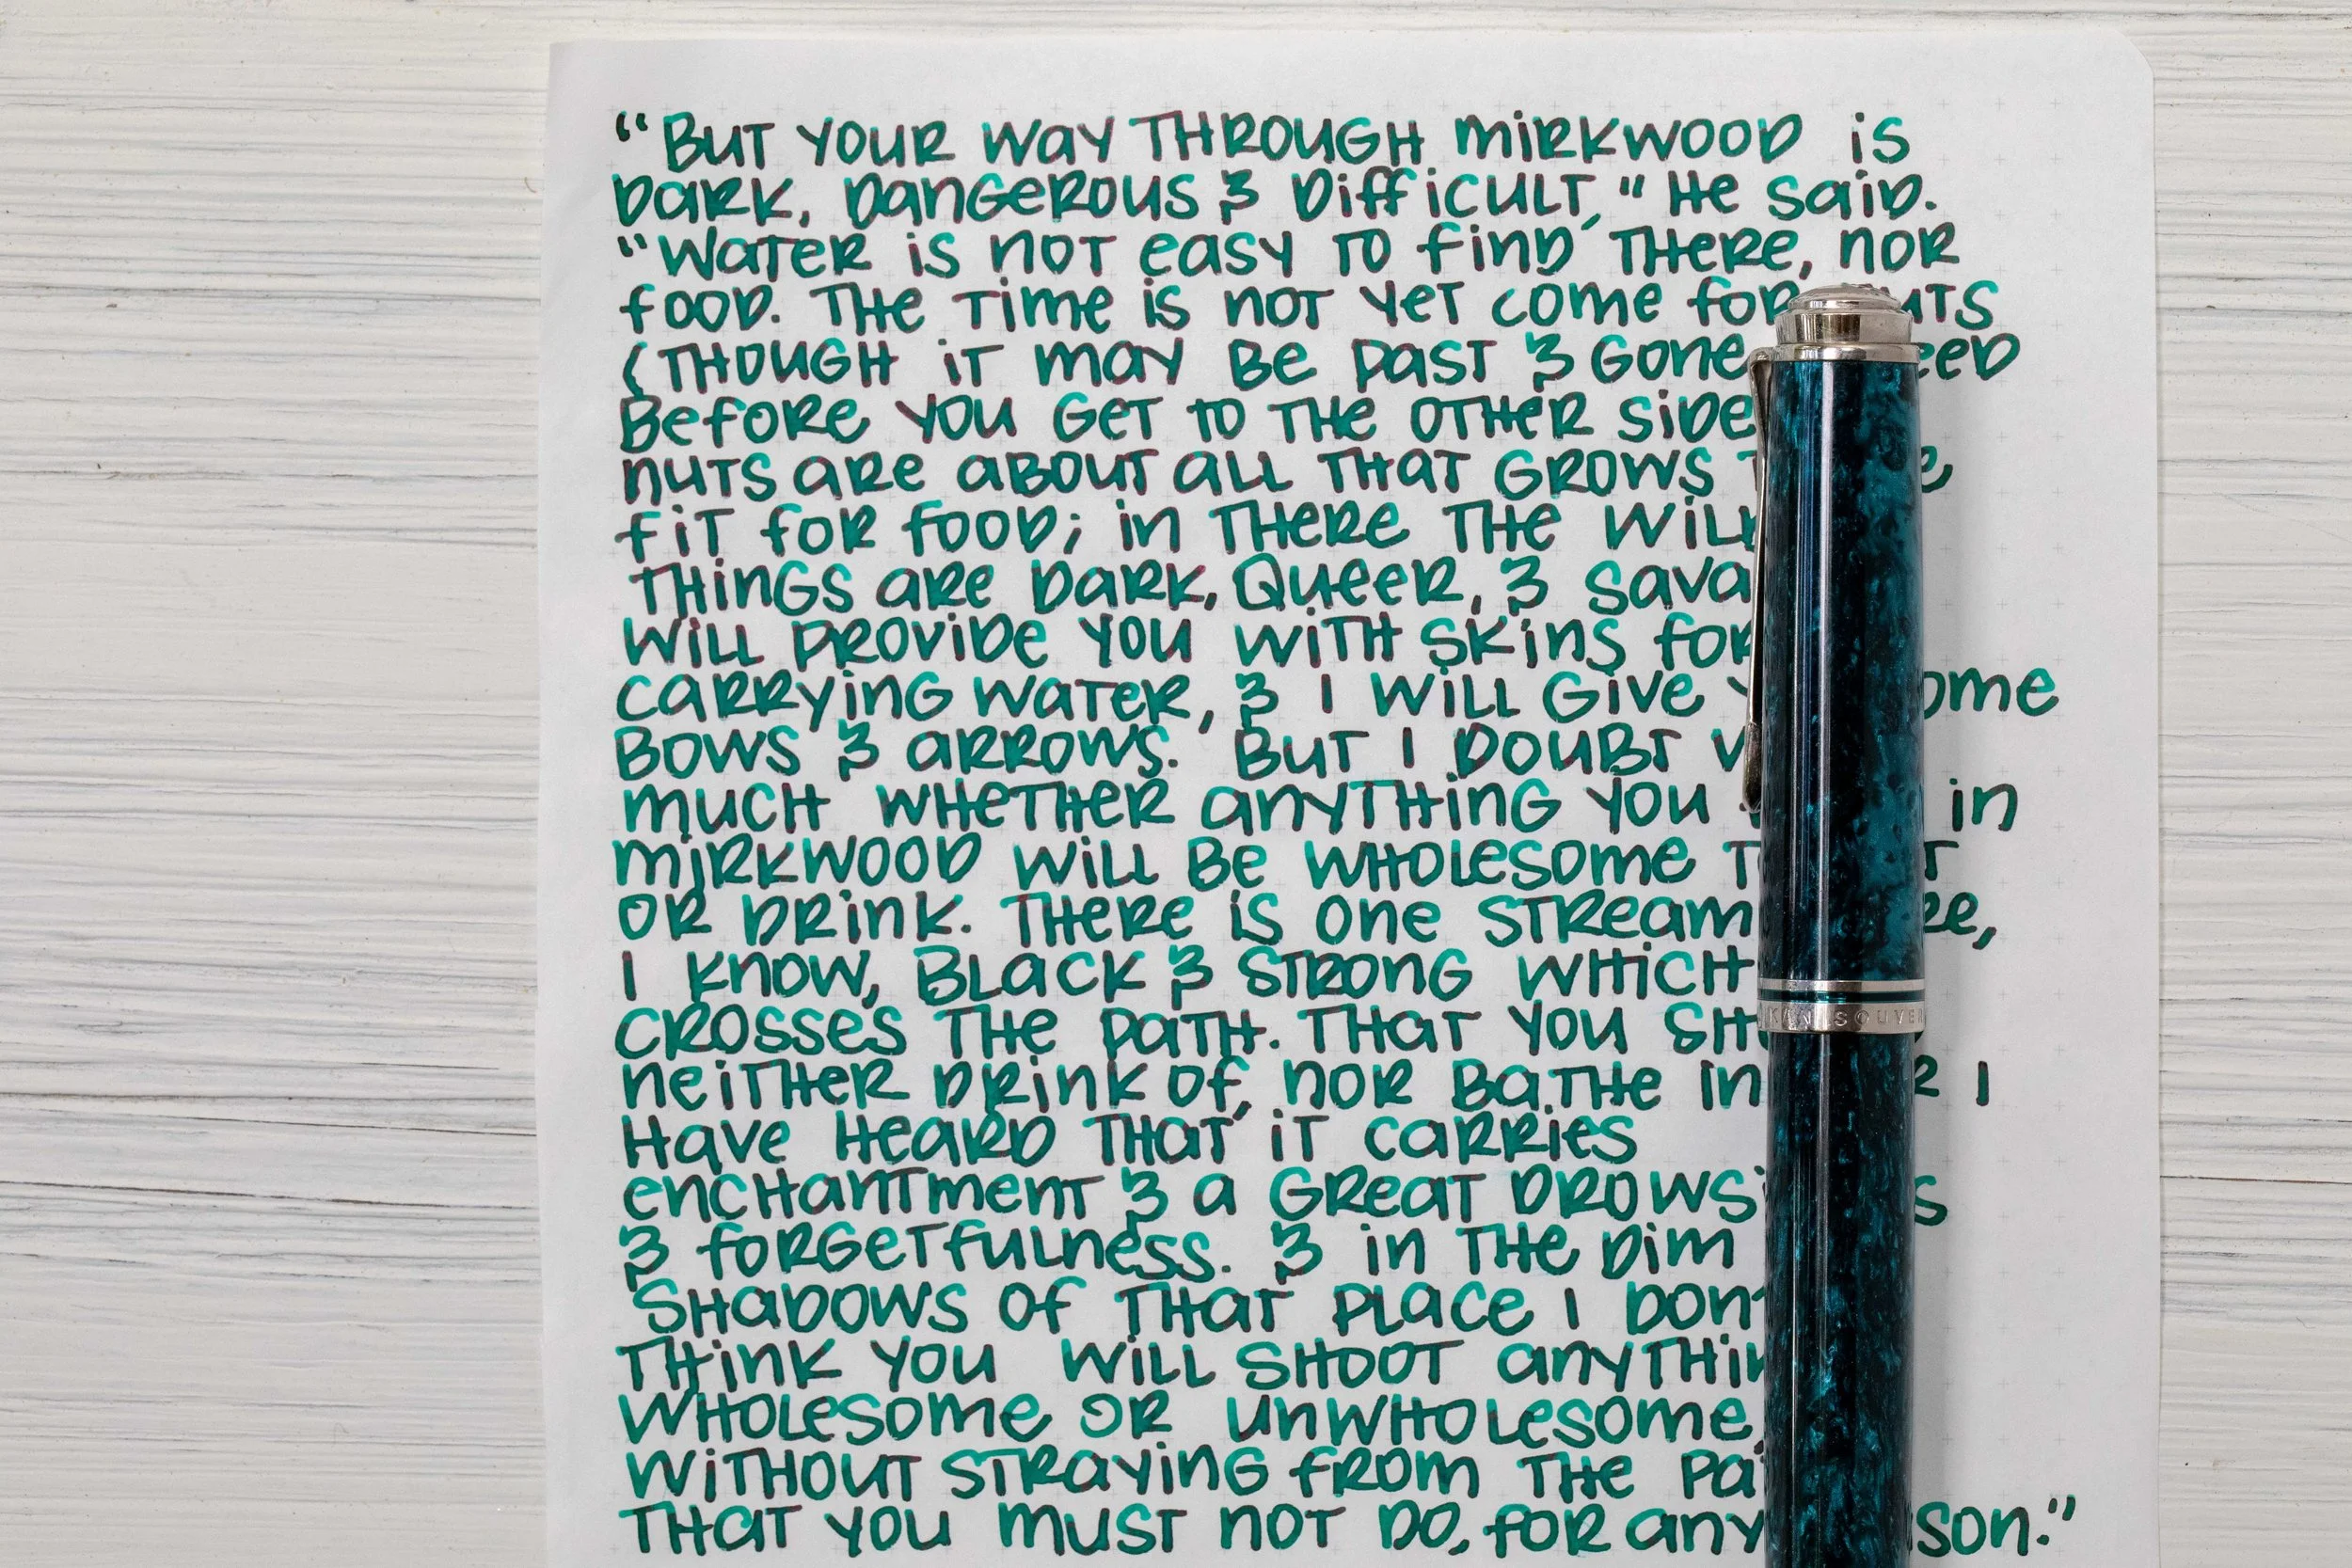 "But your way through Mirkwood is
dark, dangerous & difficult," he said.
"Water is not easy to find there, nor
food. The time is not yet come for
(though it may be past & gone
before you get to the other side
nuts are about all that grows
fit for food; in there the
things are dark, queer, &
will provide you with skins for
carrying water, & I will give
bows & arrows. But I doubt
much whether anything you in
Mirkwood will be wholesome
or drink. There is one stream
I know, black & strong which
crosses the path. That you
neither drink of, nor bathe in I
have heard that it carries
enchantment & a great
& forgetfulness. & in the dim
shadows of that place I don't
think you will shoot
wholesome or unwholesome,
without straying from the
That you must not do, for any